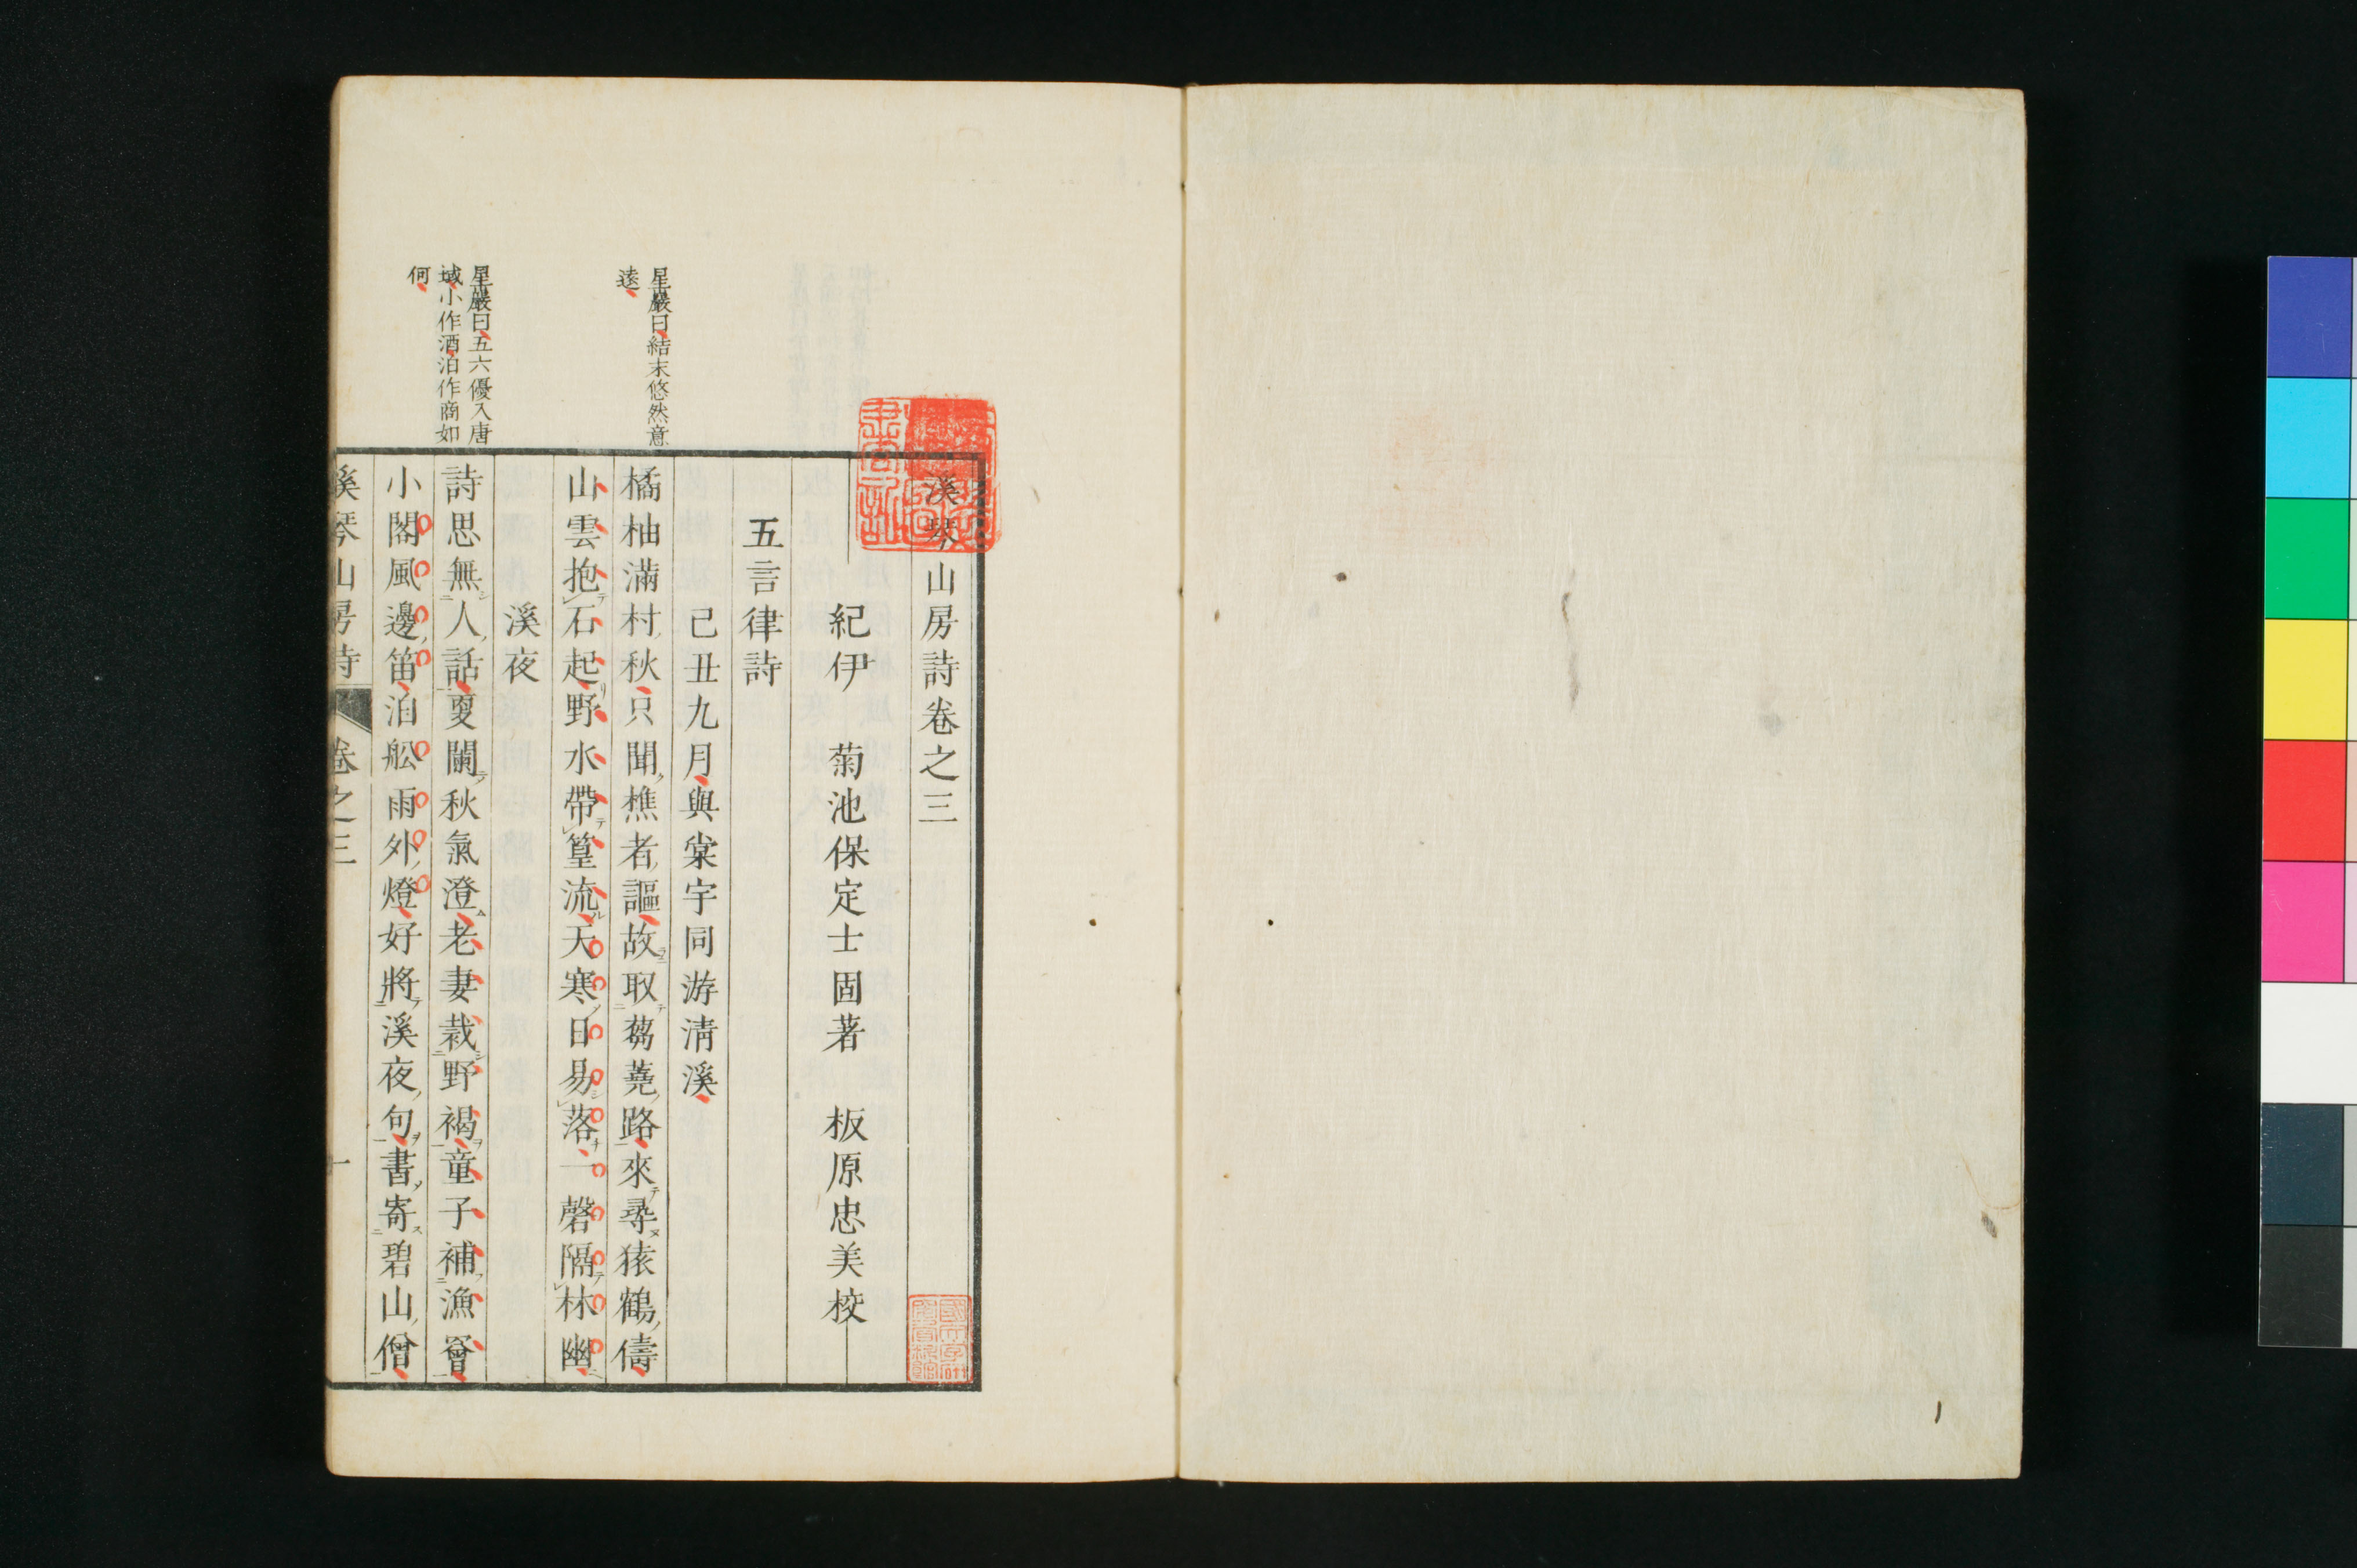 溪琴山房詩卷之三
紀伊　菊池保定士固著　板原忠美校
五言律詩
己丑九月與棠宇同游淸溪
星巖曰結末悠然意
遠
橘柚滿村秋只聞樵者謳故取蒭蕘路來尋猿鶴儔
山雲抱石起野水帶篁流天寒日易落一磬隔林幽
溪夜
星巖曰五六優入唐
域小作酒泊作商如
何
詩思無人話夏闌秋氣澄老妻裁野褐童子補漁罾
小閣風邊笛泊舩雨外燈好將溪夜句書寄碧山僧
溪琴山房詩　卷之三　一